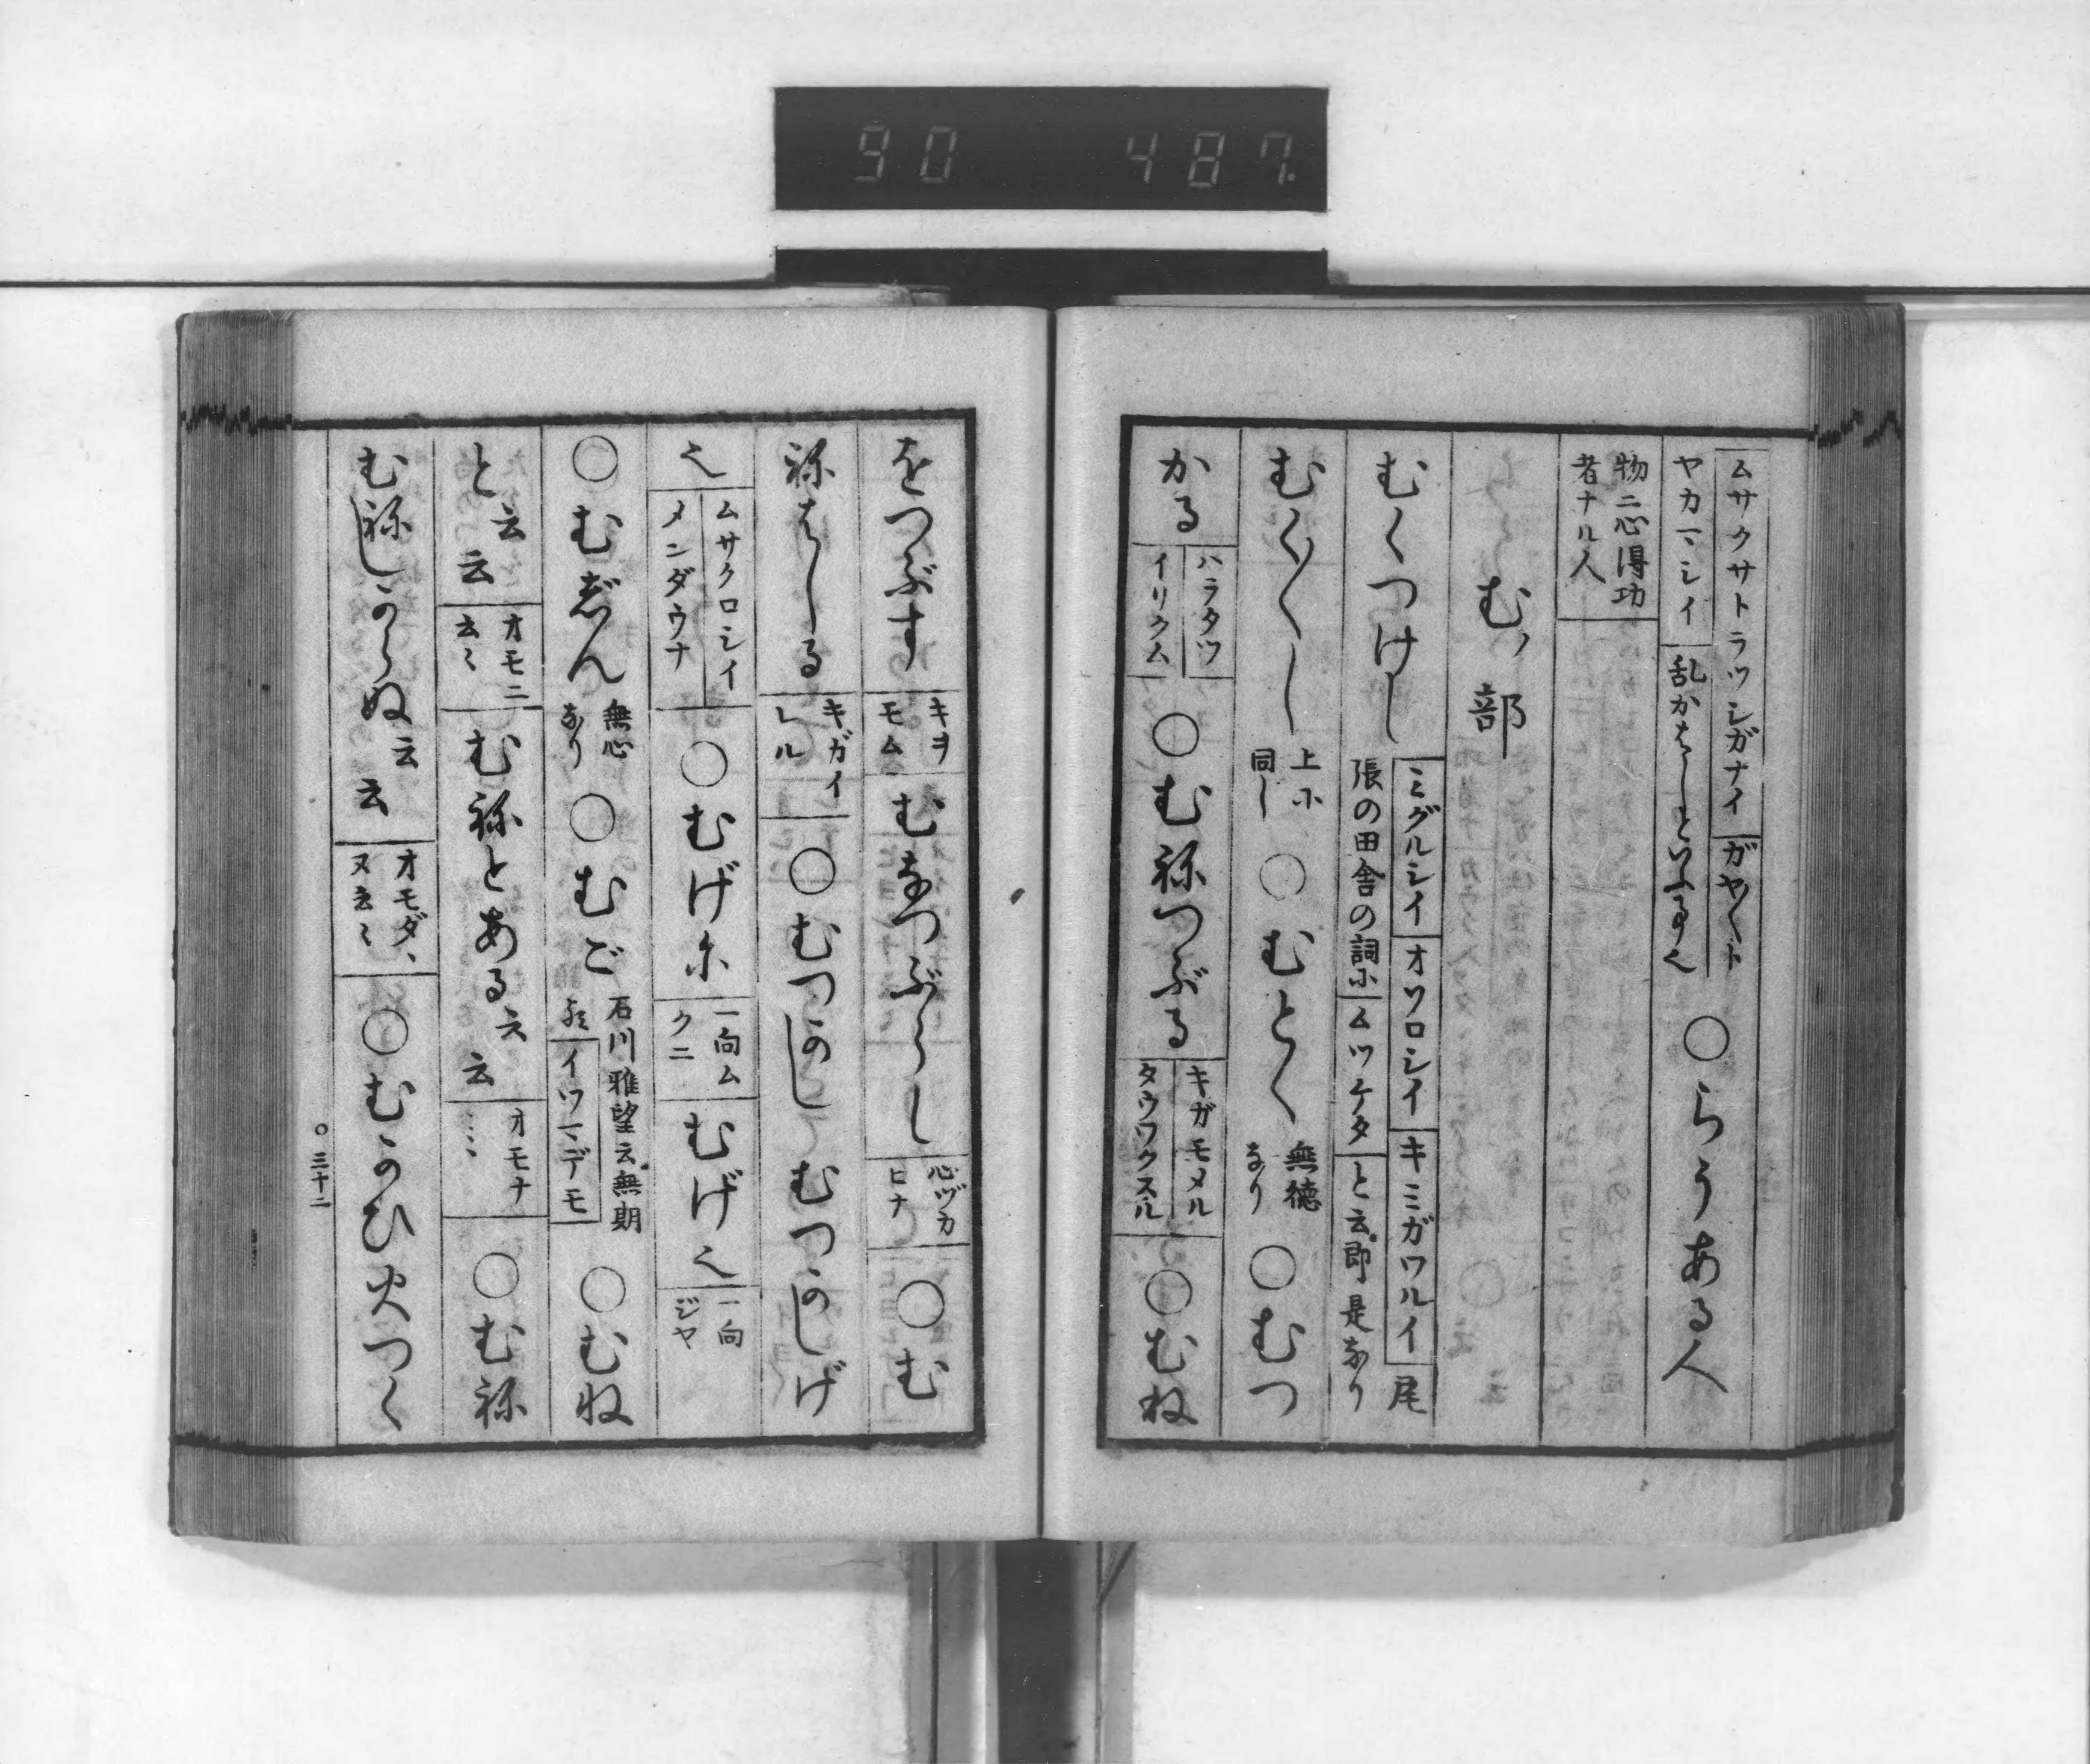 90 487.
ムサクサトラツシガナイ ガヤ〳〵ト
ヤカマシイ 乱かはしといふ事也
○らうある人
物ニ心得功
者ナル人
む ノ部
むくつけし
ミグルシイ オソロシイ キミガワルイ 尾
張の田舎の詞に ムツケタ と云即是なり
むく〳〵し 上に
同し
○むとく 無徳
なり
○むつ
かる ハラタツ
イリクム
○む祢つぶる キガモメル
タウワクスル
○むね
をつぶす キヲ
モム
むなつぶらし 心ヅカ
ヒナ
○む
祢はしる キガイ
レル
○むつかし むつかしげ
也 ムサクロシイ
メンダウナ
○むげに 一向ム
クニ
むげ也 一向
ジヤ
○むじん 無心
なり
○むご 石川雅望云無期
なり イツマデモ
○むね
と云云 オモニ
云々
む祢とある云云 オモナ
○む祢
む祢しからぬ云云 オモダヽ
ヌ云々
○むかひ火つく
三十二